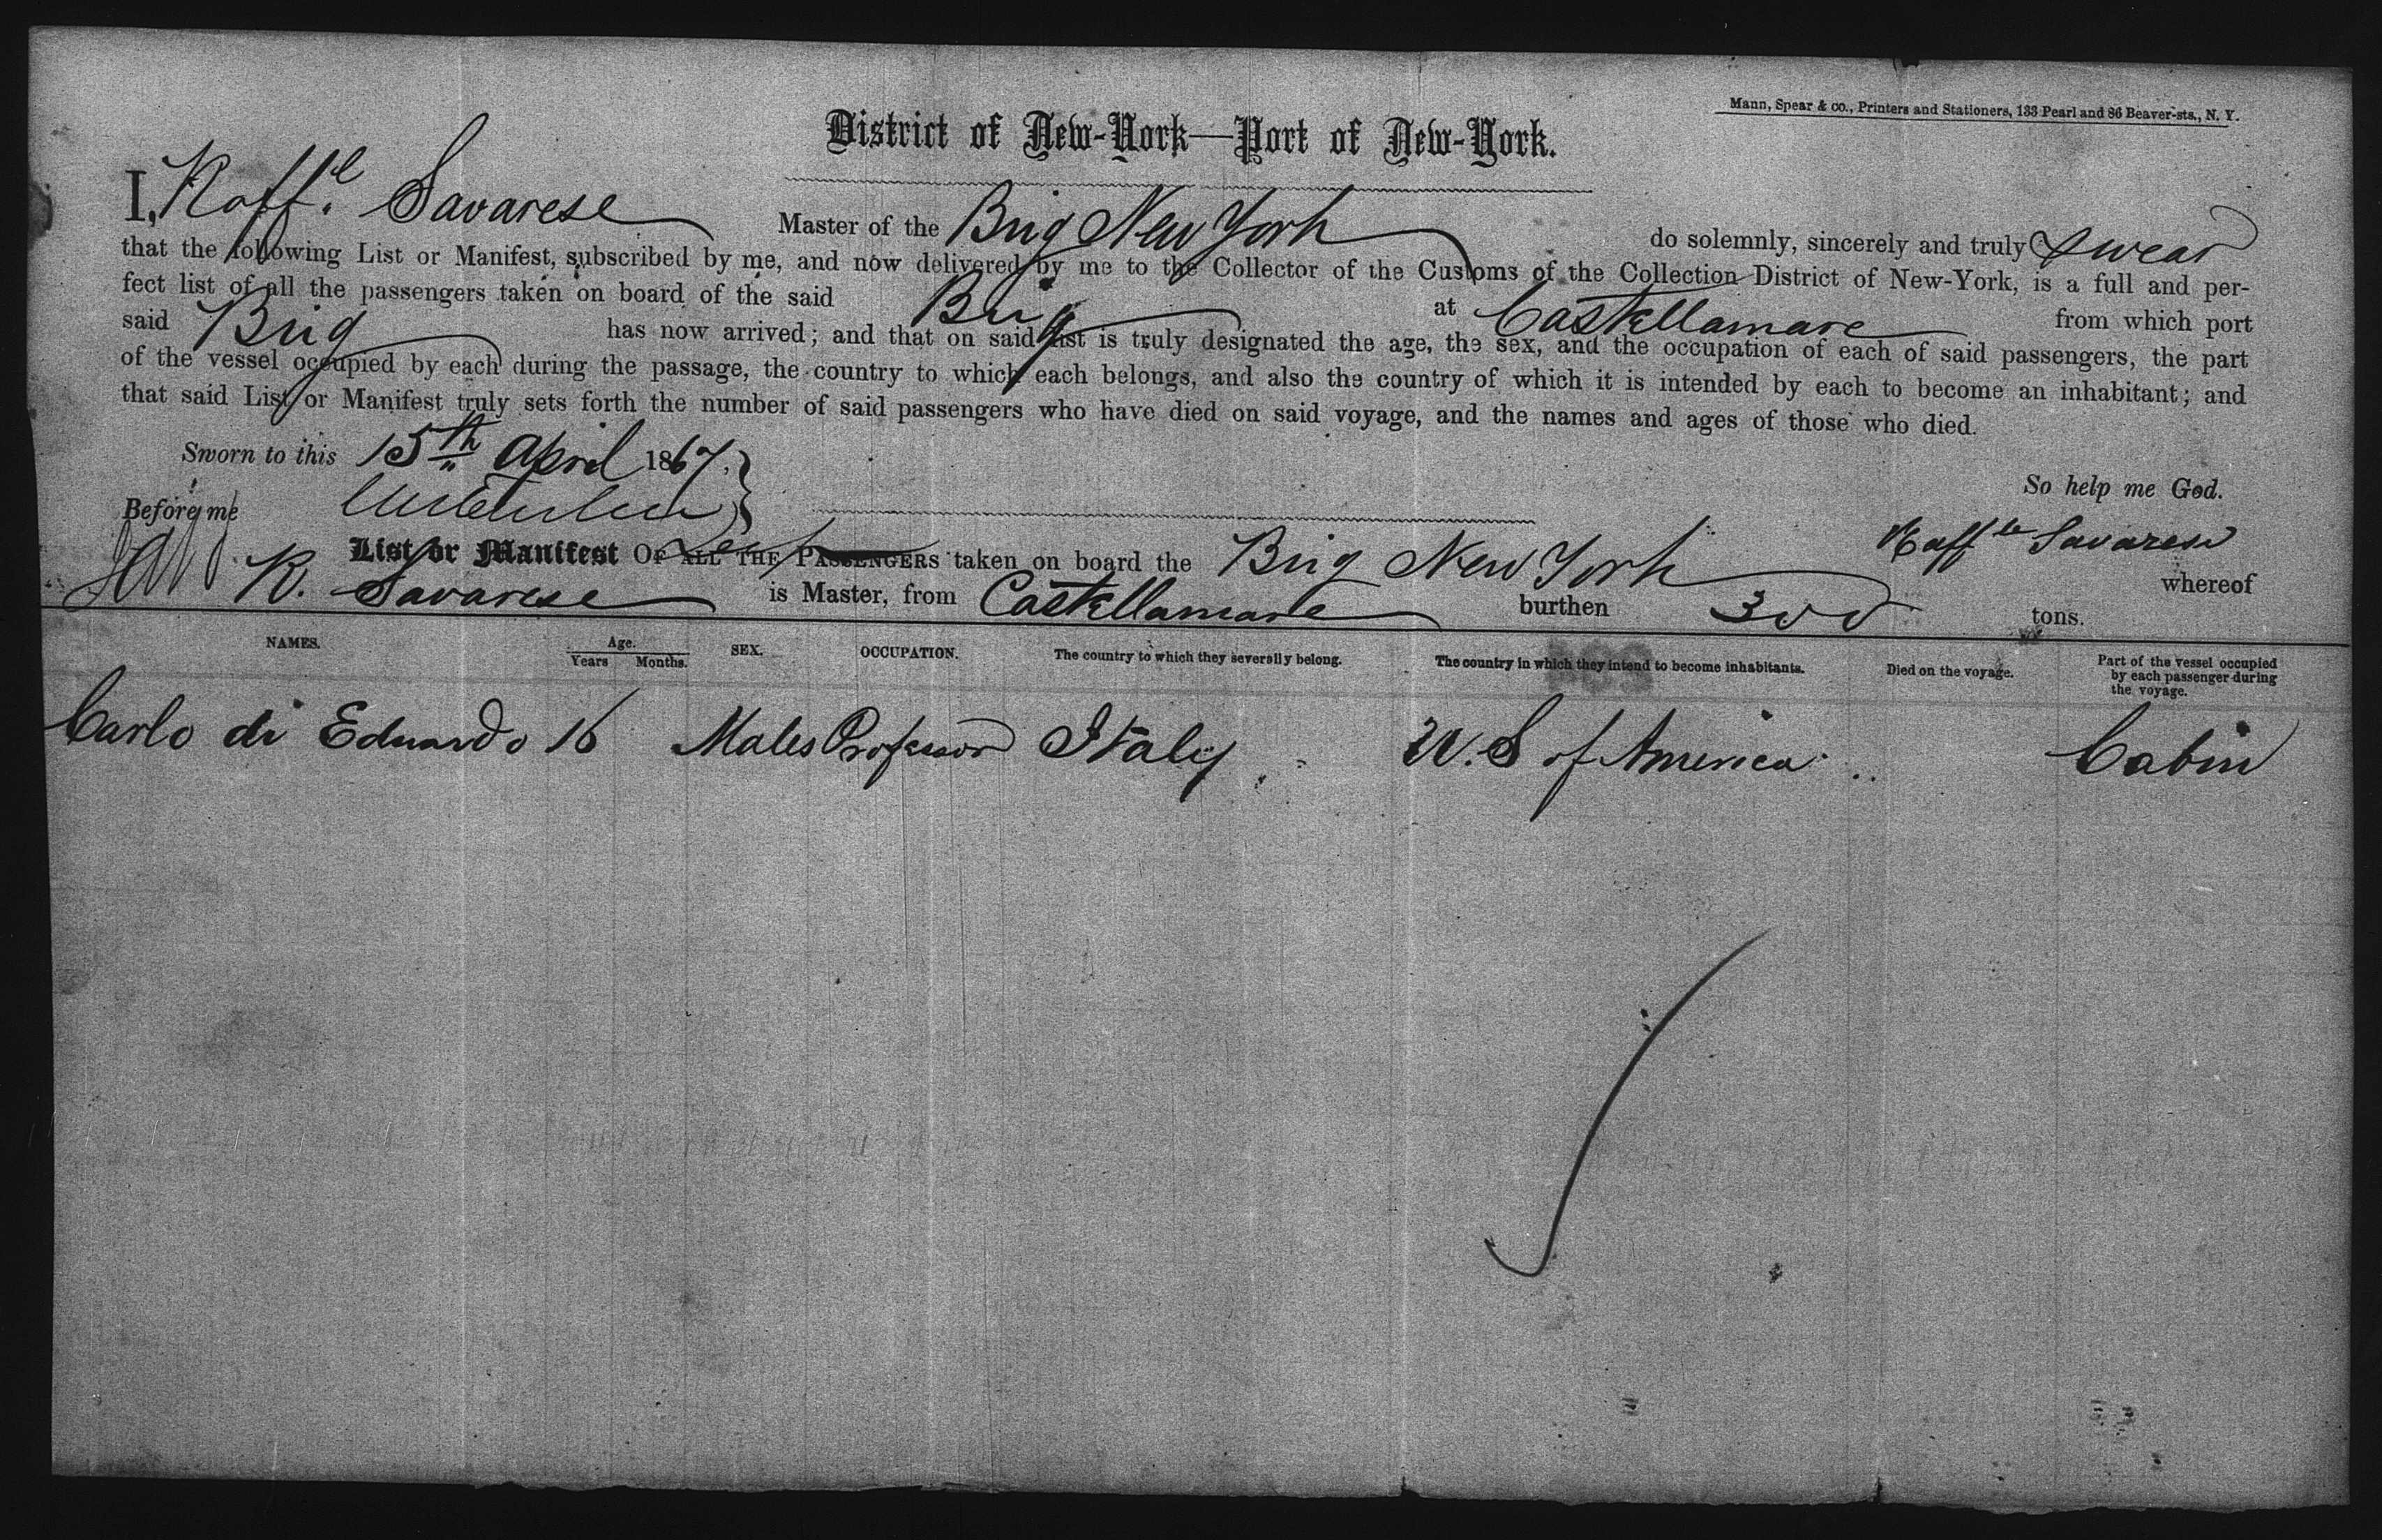 Mann, Spear & co., Printers and Stationers, 133 Pearl and 86 Beaver-sts., N. Y.
District of New-York—Port of New-York.
I, Raff.e Savarese Master of the Brig New York do solemnly, sincerely and truly swear
that the following List or Manifest, subscribed by me, and now delivered by me to the Collector of the Customs of the Collection District of New-York, is a full and per-
fect list of all the passengers taken on board of the said Brig at Castellamare from which port
said Brig has now arrived; and that on said list is truly designated the age, the sex, and the occupation of each of said passengers, the part
of the vessel occupied by each during the passage, the country to which each belongs, and also the country of which it is intended by each to become an inhabitant; and
that said List or Manifest truly sets forth the number of said passengers who have died on said voyage, and the names and ages of those who died.
Sworn to this 15th April 1867.
So help me God.
Before me
Raffle Savarese
List or Manifest OF ALL THE PASSENGERS taken on board the Brig New York whereof
R. Savarese is Master, from Castellamare burthen 300 tons.
NAMES. Age. Years Months. SEX. OCCUPATION. The country to which they severally belong. The country in which they intend to become inhabitants. Died on the voyage. Part of the vessel occupied by each passenger during the voyage.
Carlo di Eduardo 16 Males Professor Italy U. S of America Cabin